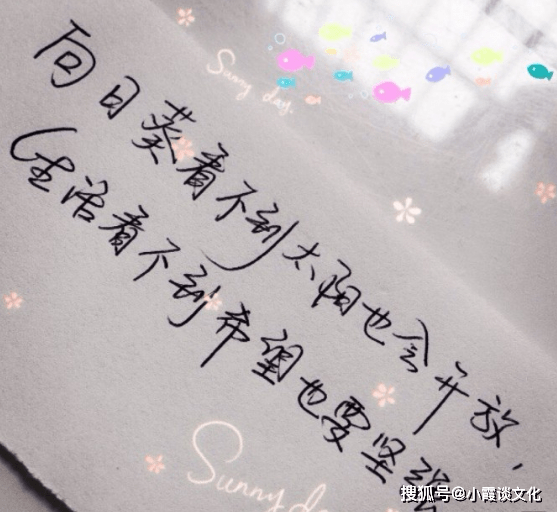 Sunny day.
向日葵看不到太阳也会开放,
生活看不到希望也要坚强
Sunny day
搜狐号@小霞谈文化